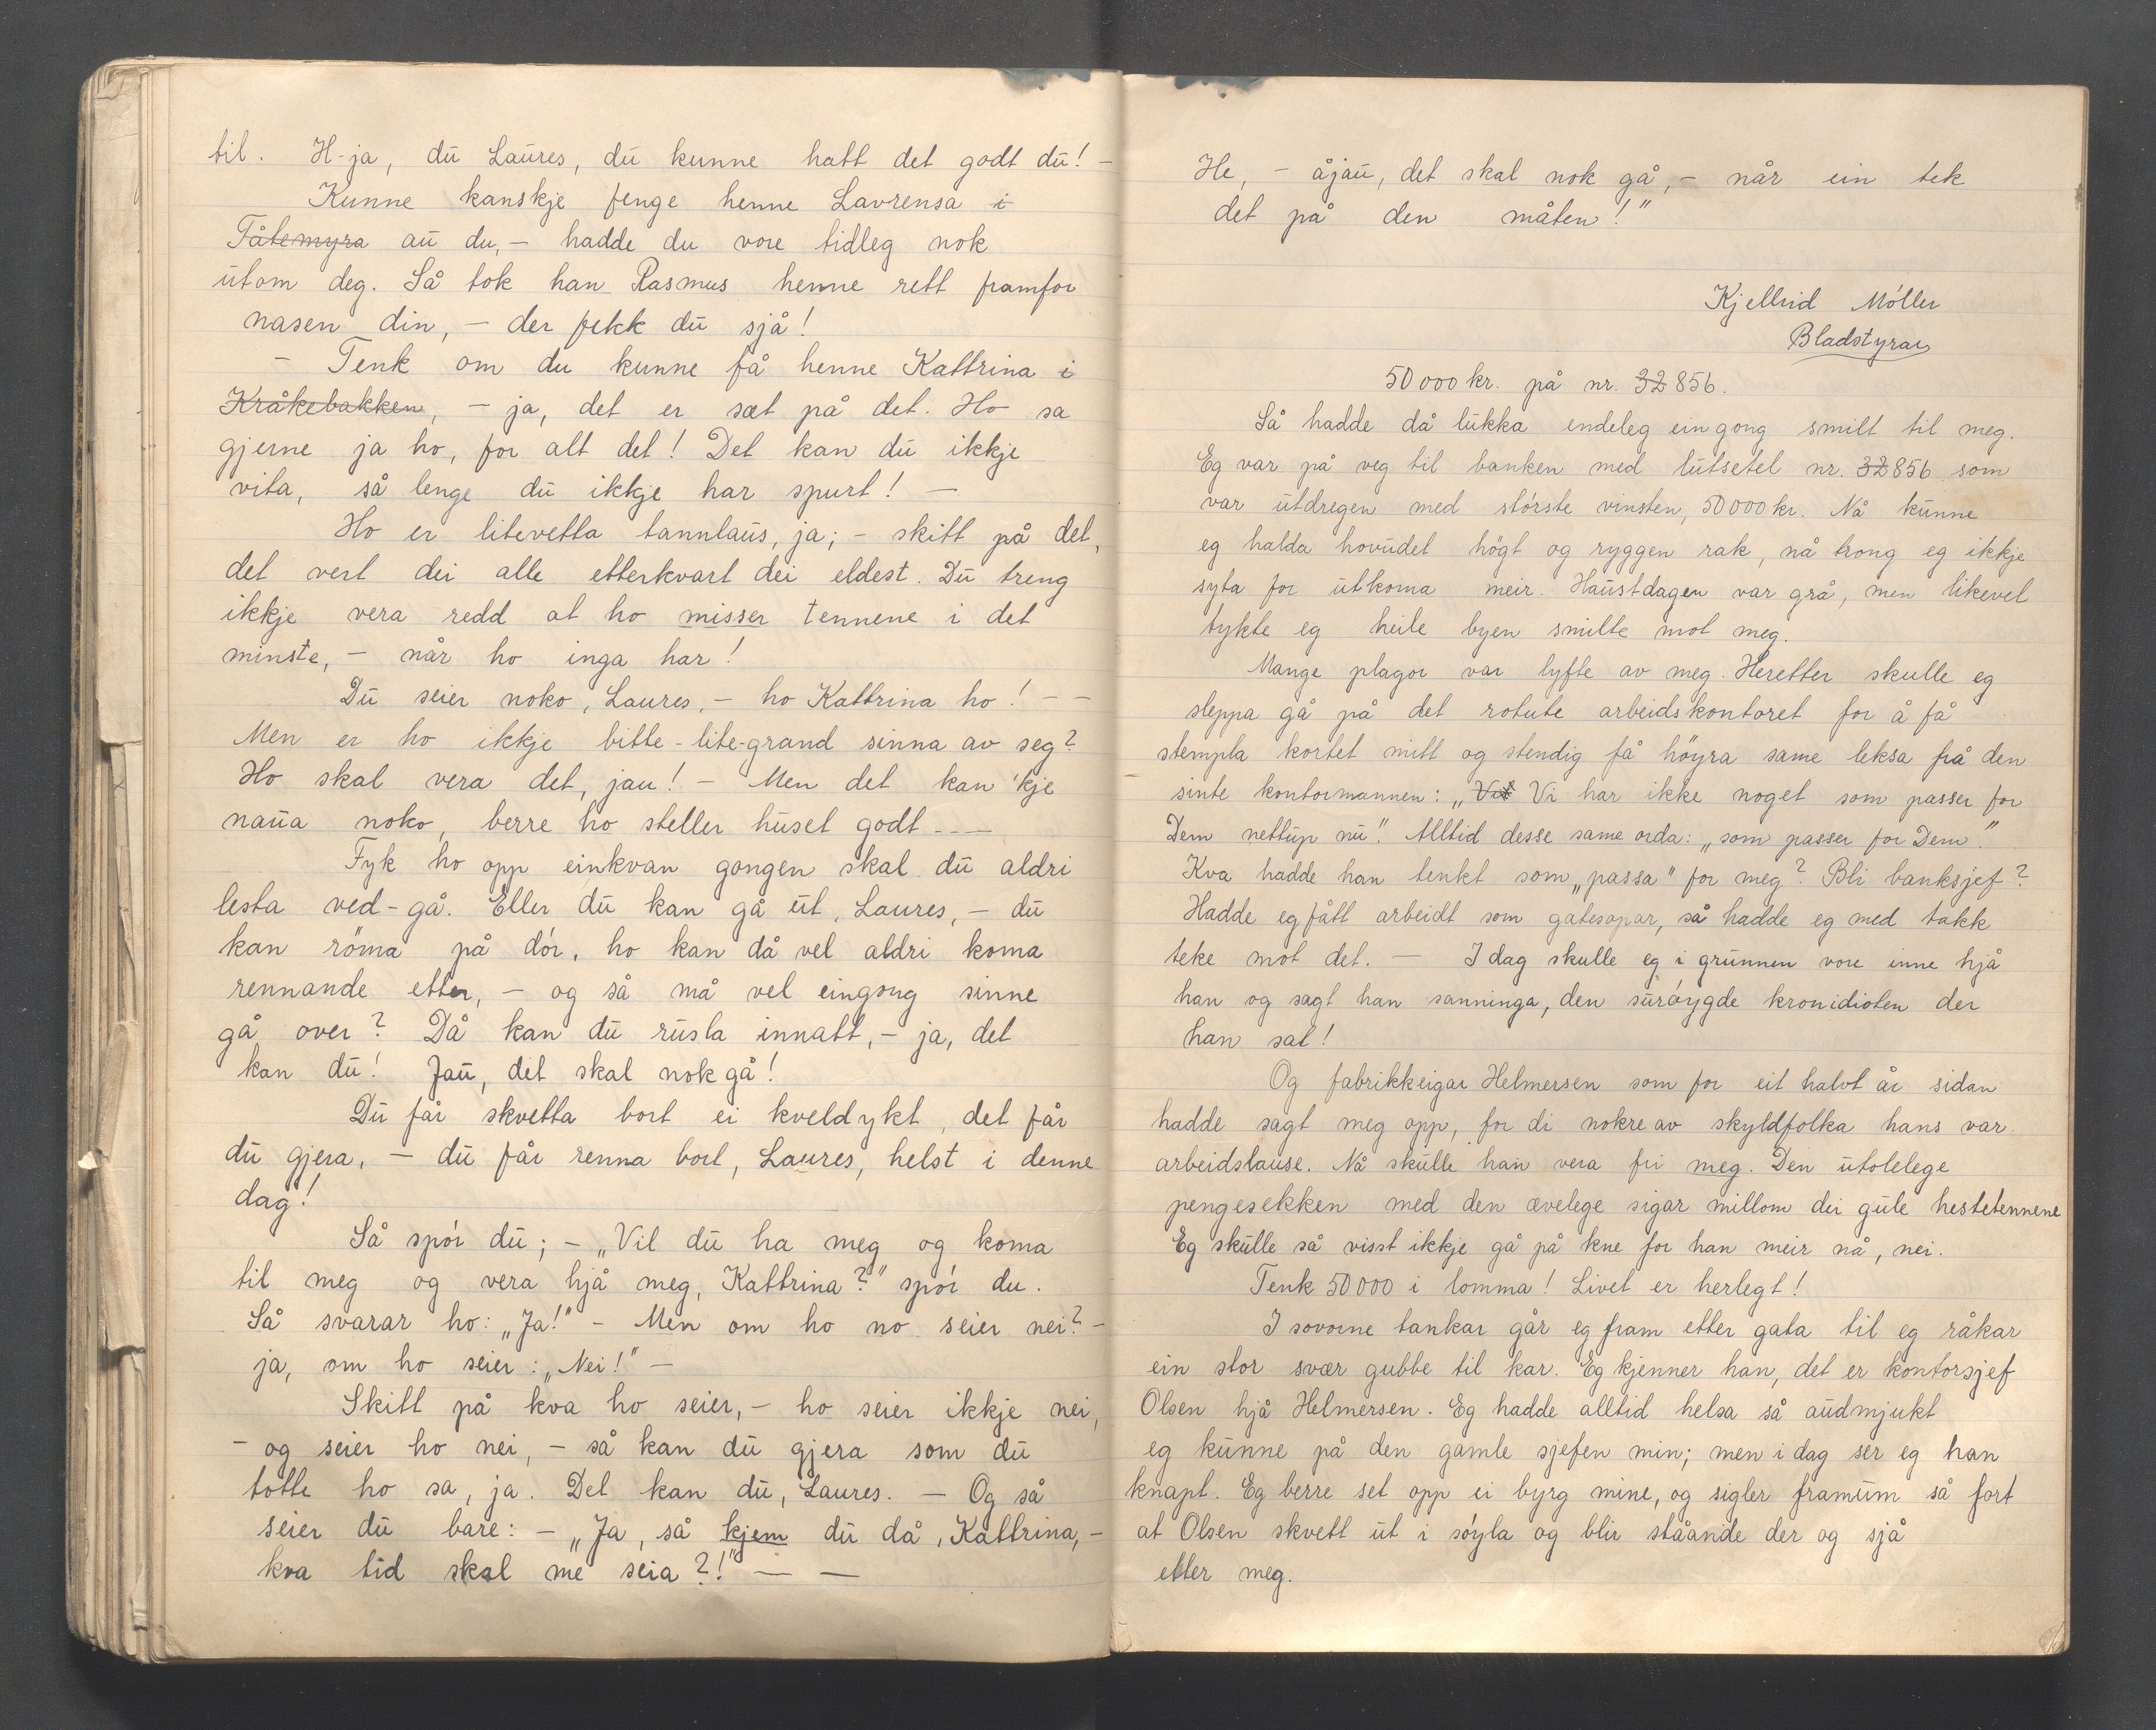 til. H-ja, du Laures, du kunne hatt det godt du! -
Kunne kanskje fenge henne Lavrensa i
Tåtemyra au du, - hadde du vore tidleg nok
utom deg. Så tok han Rasmus henne rett framfor
nasen din, - der fekk du sjå!
- Tenk om du kunne få henne Kattrina i
Kråkebakken, - ja, det er sæt på det. Ho sa
gjerne ja ho, for alt det! Det kan du ikkje
vita, så lenge du ikkje har spurt! -
Ho er litevetta tannlaus, ja; - skitt på det,
det vert dei alle etterkvart dei eldest. Du treng
ikkje vera redd at ho misser tennene i det
minste, - når ho inga har!
Du seier noko, Laures, - ho Kattrina ho! - -
Men er ho ikkje bitte-lite-grand sinna av seg?
Ho skal vera det, jau! - Men det kan 'kje
naua noko, berre ho steller huset godt - - -
Fyk ho opp einkvan gongen skal du aldri
lesta ved-gå. Eller du kan gå ut, Laures, - du
kan röma på dór, ho kan då vel aldri koma
rennande etter, - og så må vel eingong sinne
gå over? Då kan du rusla innatt, - ja, det
kan du! Jau, det skal nok gå!
Du får skvetta bort ei kveldykt, det får
du gjera, - du får renna bort, Laures, helst i denne
dag!
Så spór du; - „Vil du ha meg og koma
til meg og vera hjå meg, Kattrina?" spór du.
Så svarar ho: „Ja!" - Men om ho no seier nei? -
ja, om ho seier: „Nei!" -
Skitt på kva ho seier, - ho seier ikkje nei,
- og seier ho nei, - så kan du gjera som du
totte ho sa, ja. Det kan du, Laures. - Og så
seier du bare: - „Ja, så kjem du då, Kattrina, -
kva tid skal me seia?!" - -
He, - åjau, det skal nok gå, - når ein tek
det på den måten!"
Kjellrid Móller
Bladstyrar
50000 kr. på nr. 32856.
Så hadde då lukka endeleg ein gong smilt til meg.
Eg var på veg til banken med lutsetel nr. 32856 som
var utdregen med stórste vinsten, 50000 kr. Nå kunne
eg halda hovudet högt og ryggen rak, nå trong eg ikkje
syta for utkoma meir. Haustdagen var grå, men likevel
tykte eg heile byen smilte mot meg.
Mange plagor var lyfte av meg. Heretter skulle eg
sleppa gå på det rotute arbeidskontoret for å få
stempla kortet mitt og stendig få höyra same leksa frå den
sinte kontormannen: „Vit Vi har ikke noget som passer for
Dem nettup nu". Alltid desse same orda: „som passer for Dem".
Kva hadde han tenkt som „passa" for meg? Bli banksjef?
Hadde eg fått arbeidt som gatesopar, så hadde eg med takk
teke mot det. - I dag skulle eg i grunnen vore inne hjå
han og sagt han sanninga, den suróygde kronidioten der
han sat!
Og fabrikkeigar Helmersen som for eit halvt år sidan
hadde sagt meg opp, for di nokre av skyldfolka hans var
arbeidslause. Nå skulle han vera fri meg. Den utolelege
pengesekken med den ævelege sigar millom dei gule hestetennene
Eg skulle så visst ikkje gå på kne for han meir nå, nei.
Tenk 50000 i lomma! Livet er herlegt!
I sovorne tankar går eg fram etter gata til eg råkar
ein stor svær gubbe til kar. Eg kjenner han, det er kontorsjef
Olsen hjå Helmersen. Eg hadde alltid helsa så audmjukt
eg kunne på den gamle sjefen min; men i dag ser eg han
knapt. Eg berre set opp ei byrg mine, og sigler framum så fort
at Olsen skvett ut i sóyla og blir ståande der og sjå
etter meg.